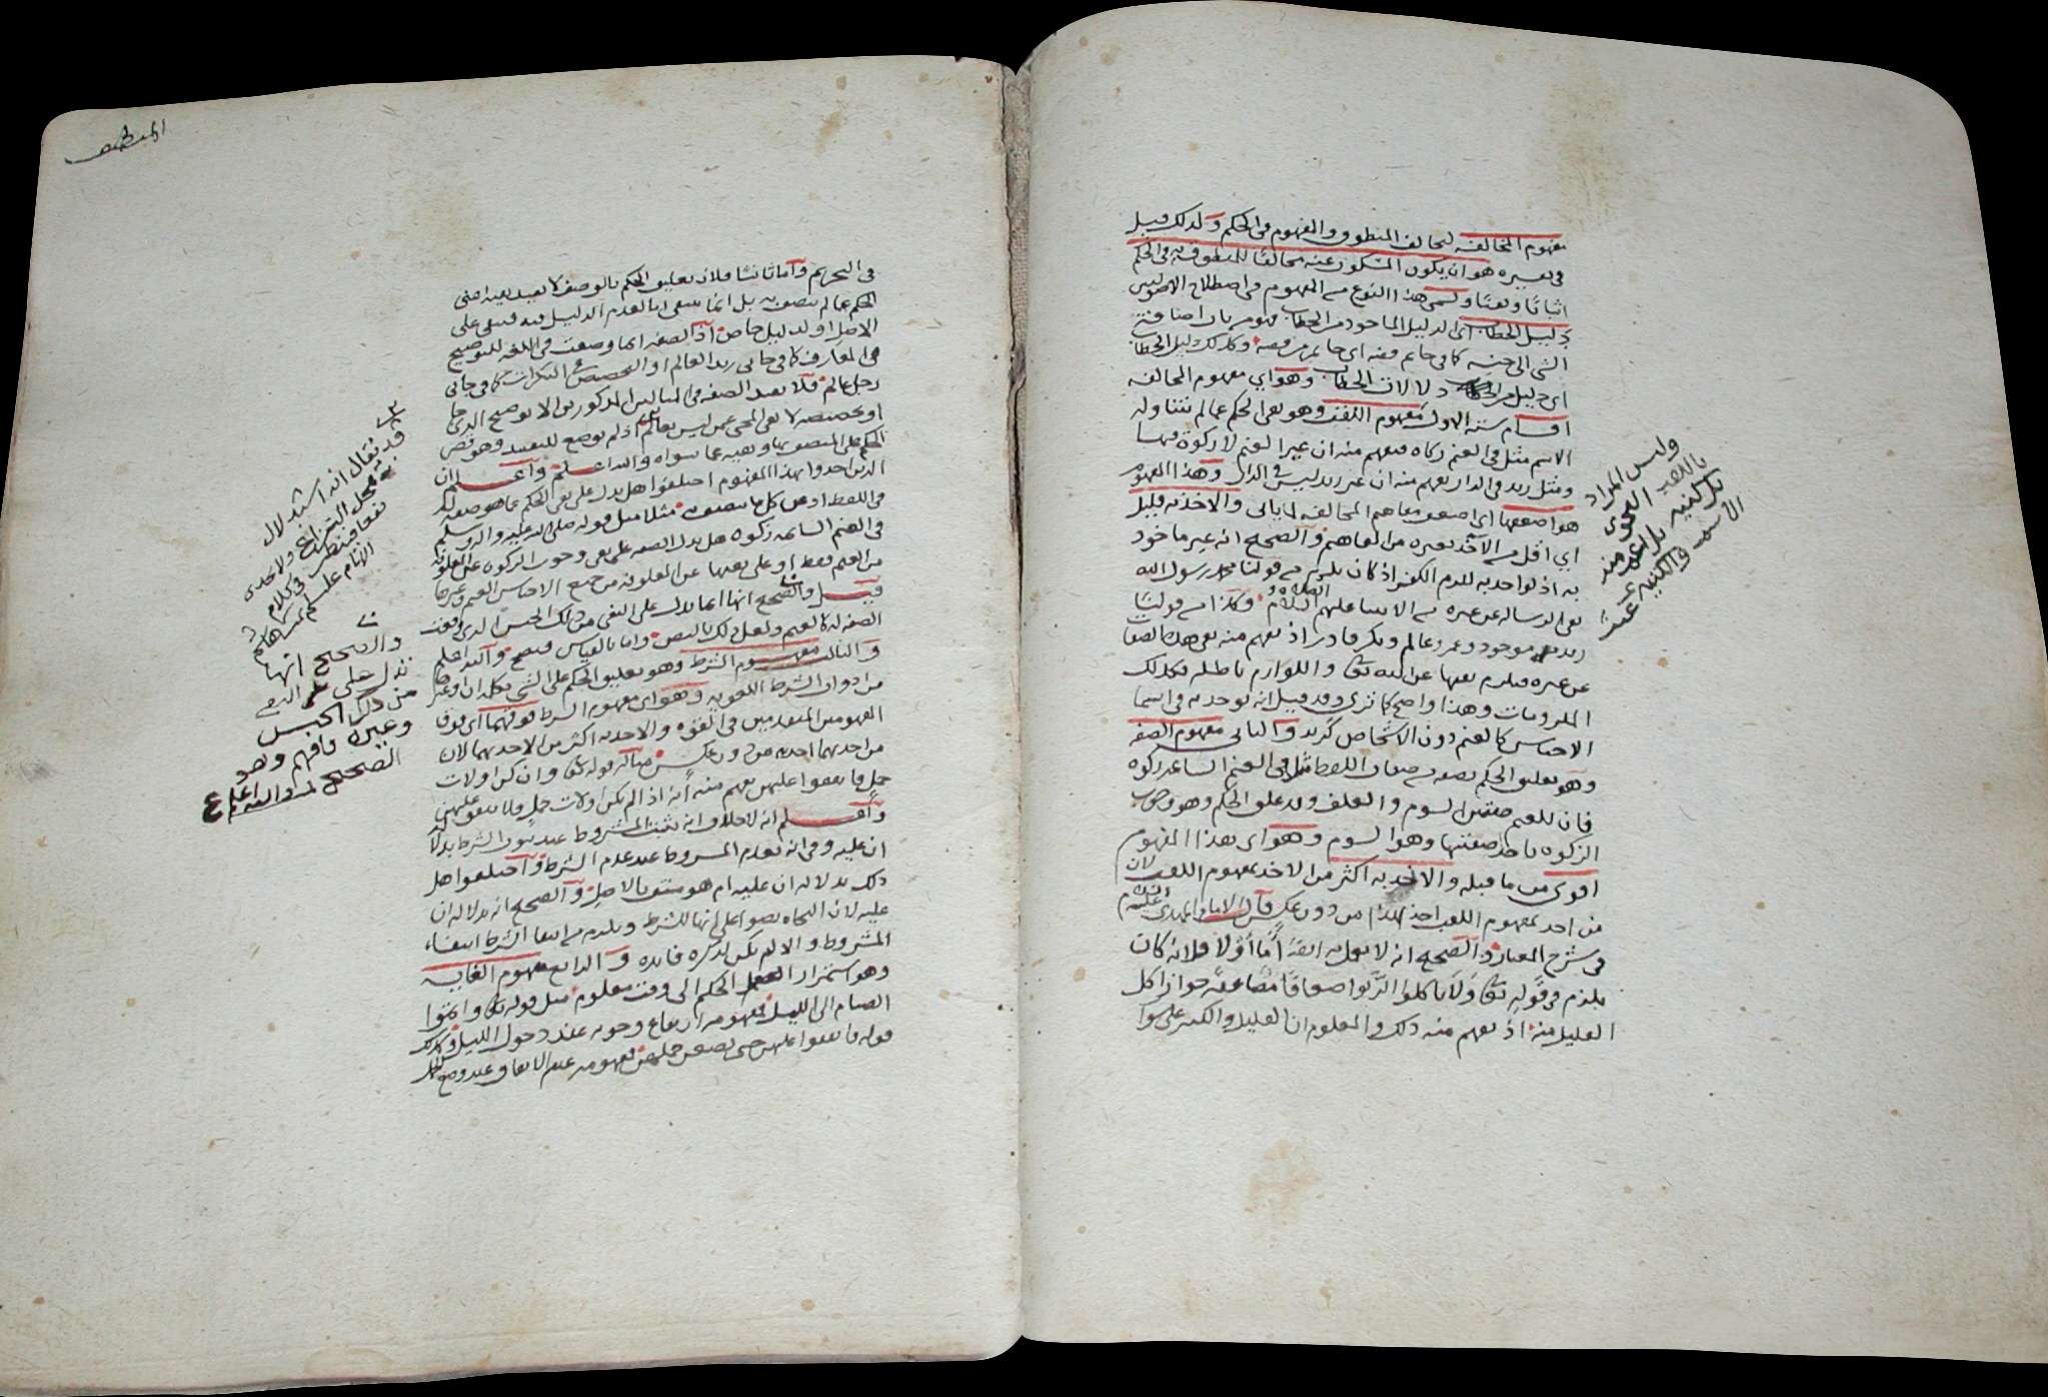 مفهوم المخالفه لتخالف المنطوق والمفهوم فى الحكم ولذلك قيل
فى تفسيره هو ان يكون المسكوت عنه مخالفا للمنطوق به فى الحكم
اثباتا ونفيا ويسمى هذا النوع من المفهوم فى اصطلاح الاصوليين
دليل الخطاب اى الدليل الماخوذ من الخطاب فهو من باب اضافة
الشى الى جنسه كما فى خاتم فضه اى خاتم من فضه وكذلك دليل الخطاب
اى دليل من دلالات الخطاب وهو اي مفهوم المخالفه
اقسام سته الاول مفهوم اللقب وهو نفى الحكم عما لم يتناوله
الاسم مثل فى الغنم زكاه فيفهم منه ان غير الغنم لا زكوة فيها
ومثل زيد فى الدار يفهم منه ان غير زيد ليس فى الدار وهذا المفهوم
هو اضعفها اى اضعف مفاهيم المخالفه لما ياتى والاخذ به قليل
اي اقل من الاخذ بغيره من المفاهيم والصحيح انه غير ماخوذ
به اذ لو اخذ به للزم الكفر اذ كان يلزم من قولنا محمد رسول الله
نفى الرساله عن غيره من الانبيا عليهم الصلاه والسلام وكذا من قولنا
زيد موجود وعمرو عالم وبكر قادر اذ يفهم منه نفى هذه الصفات
عن غيره فيلزم نفيها عن الله تعا واللوازم باطله فكذلك
الملزومات وهذا واضح كما ترى وقد قيل انه يوخذ به فى اسما
الاجناس كالغنم دون الاشخاص كزيد والثانى مفهوم الصفه
وهو تعليق الحكم بصفه من صفات اللفظ مثل فى الغنم السائمه زكوه
فان للغنم صفتين السوم والعلف وقد علق الحكم وهو وجوب
الزكوه باحد صفتيها وهو السوم وهو اى هذا المفهوم
اقوى من ما قبله والاخذ به اكثر من الاخذ بمفهوم اللقب لان
من اخذ بمفهوم اللقب اخذ بهذا من دون عكس قال الامام المهدى عليه السلام
فى شرح المعيار والصحيح انه لا يعمل به ايضا اما اولا فلانه كان
يلزم فى قوله تعا ولا تاكلوا الربوا اضعافا مضاعفه جواز اكل
القليل منه اذ يفهم منه ذلك والمعلوم ان القليل والكثير على سوا
وليس المراد
باللقب النحوى
بل اعم منه
الاسم والكنيه
فى التحريم واما ثانيا فلان تعليق الحكم بالوصف لا يفيد نفيه
الحكم عما لم يتصف به بل انما ينتفى لعدم الدليل فيه فيبقى على
الاصل او لدليل خاص اذ الصفه انما وضعت فى اللغه للتوضيح
فى المعارف كما فى جانى زيد العالم او التخصيص فى النكرات كما فى جانى
رجل عالم فلا تفيد الصفه فى المثالين المذكورين الا توضيح الذى جا
او تخصيصه لا نفى المجى عمن ليس بعالم اذ لم يوضع للتقييد وهو قصر
الحكم على المتصف بها ونفيه عما سواه والله اعلم واعلم ان
الذين اخذوا بهذا المفهوم اختلفوا هل يدل على نفى الحكم عما هو صفه له
فى اللفظ او عن كل ما يتصف به مثلا مثل قوله صلى الله عليه واله وسلم
فى الغنم السائمه زكوه هل يدل الصفه على نفى وجوب الزكوه على المعلوفه
من الغنم فقط او على نفيها عن المعلوفه من جميع الاجناس الغنم وغيرها
قيل والصحيح انها انما تدل على النفى من ذلك الجنس الذى وقعت
الصفه له كالغنم ولعل ذلك بالنص واما بالقياس فيصح والله اعلم
والثالث مفهوم الشرط وهو تعليق الحكم على الشى بكلمه ان او غيرها
من ادوات الشرط اللغويه وهو اى مفهوم الشرط فوقهما اى فوق
المفهومين المتقدمين فى القوه والاخذ به اكثر من الاخذ بهما لان
من اخذ بهما اخذ به من دون عكس مثاله قوله تعا وان كن اولات
حمل فانفقوا عليهن يفهم منه انه اذا لم يكن اولات حمل فلا ينفق عليهن
واعلم انه لا خلاف انه يثبت المشروط عند ثبوت الشرط بدلالة
ان عليه وفى انه يعدم المشروط عند عدم الشرط واختلفوا هل
ذلك بدلاله ان عليه ام هو منتف بالاصل والصحيح انه بدلاله ان
عليه لان النحاه نصوا على انها للشرط ويلزم من انتفا الشرط انتفاء
المشروط والا لم يكن لذكره فايده والرابع مفهوم الغايه
وهو استمرار الحكم الى وقت معلوم مثل قوله تعا واتموا
الصيام الى الليل فمفهومه ارتفاع وجوبه عند دخول الليل وكذلك
قوله فانفقوا عليهن حتى يضعن حملهن فمفهومه عدم الانفاق عند وضع الحمل
قد يقال انه استدلال
بمحل النزاع ولا يجدى
نفعا فينظر فى كلام
الامام عليه السلام
والصحيح انها
تدل على النفى
من ذلك الجنس
وغيره فافهم وهو
الصحيح والله اعلم